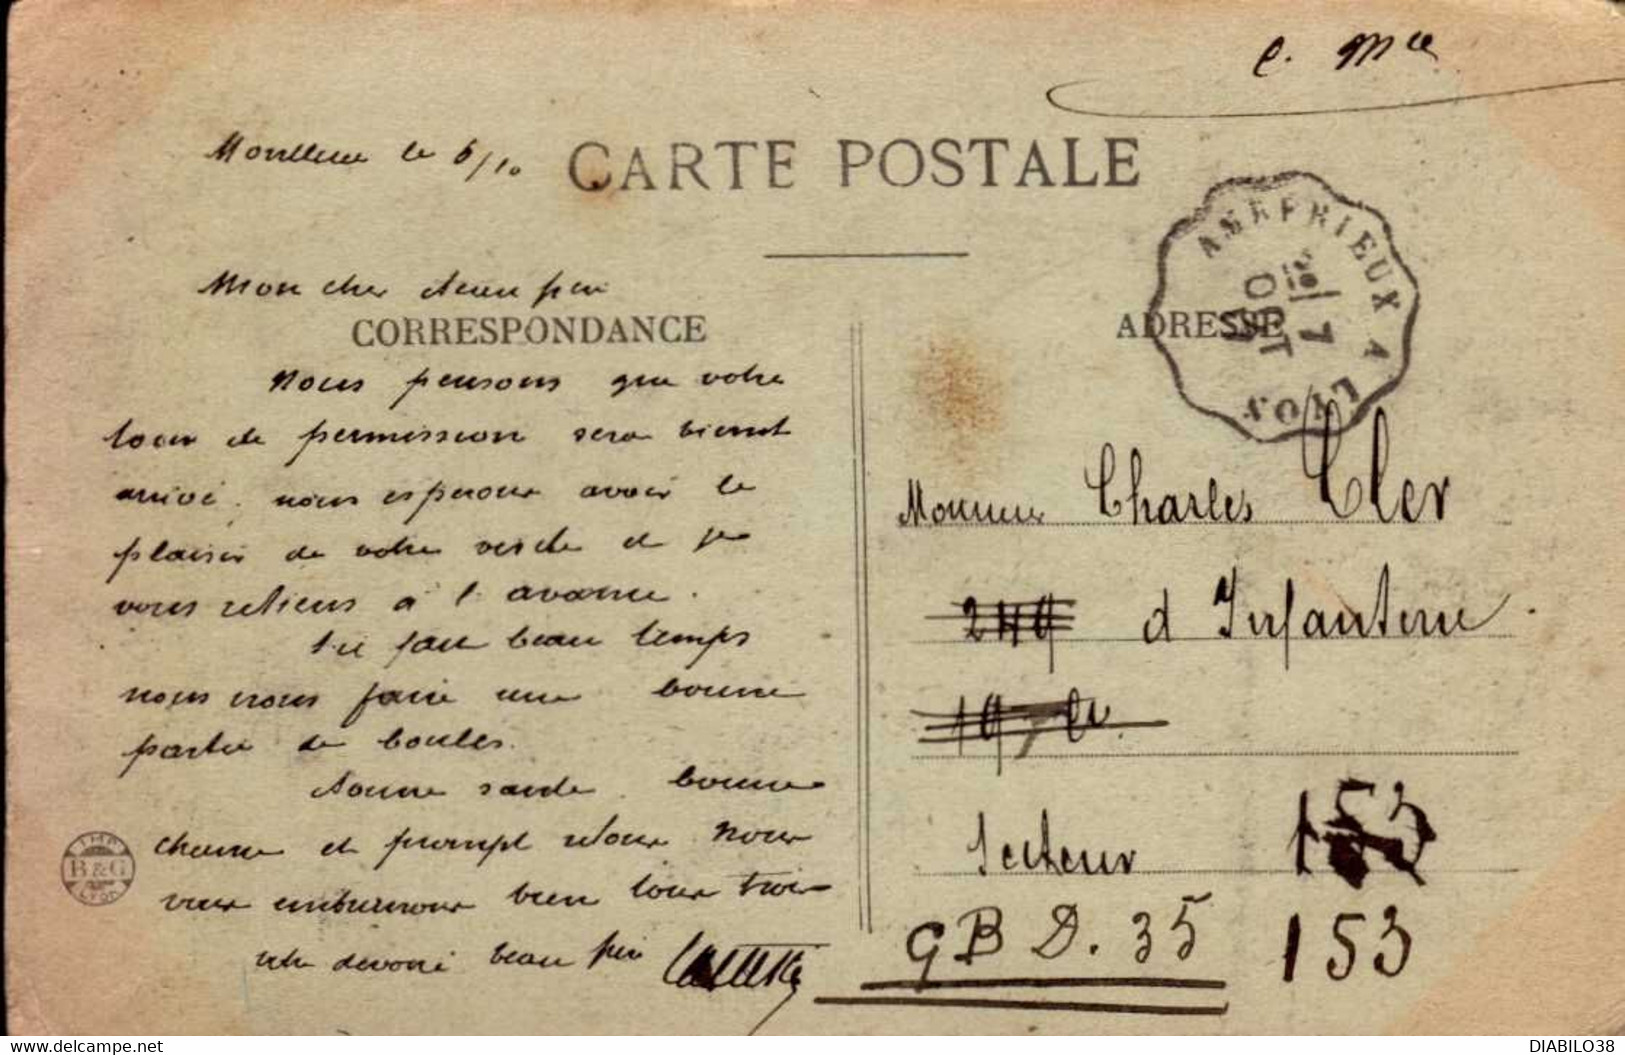 C. Mce
le 6/10
CARTE POSTALE
AMBERIEUX A LYON
7
OCT
Mon cher
CORRESPONDANCE
ADRESSE
Nous pensons que votre
tour de permission sera bientot
arrivé. nous esperons avoir le
plaisir de votre visite et je
vous retiens à l'avance.
fait beau temps
nous irons faire une bonne
partie de boules.
Bonne santé bonne
chance et prompt retour Nous
vous embrassons bien tous trois
votre devoué beau père
Monsieur Charles Cler
249 d Infanterie
19e
Secteur 153
GBD. 35 153
IMP.
B & G
LYON
DIABILO38